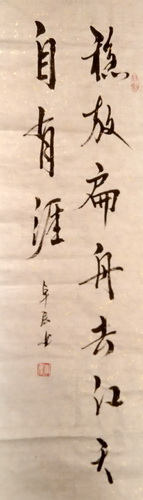 穏放扁舟去江天
自有涯
卓辰書